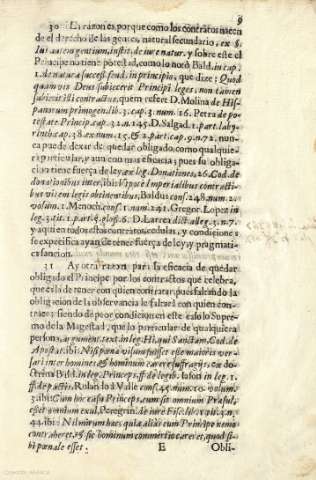 9
30 La razon es porque como los contratos nacen
de el derecho de las gentes, natural secundario, ex §.
Ius autem gentium, instit. de iure natur. y sobre este el
Principe no tiene potestad, como lo notò Bald. in cap.
1. de natura success. feud. in principio, que dize: Quod
quamvis Deus subiecerit Principi leges, non tamen
subiecit illi contractus, quem refere D. Molina de His-
panorum primogen. lib. 3. cap. 3. num. 16. Petra de po-
testate Princip. cap. 32. n. 145. D. Salgad. 1. part. laby-
rinth. cap. 38. ex num. 15. & 2. part. cap. 9. n. 72. nun-
ca puede dexar de quedar obligado, como qualquie-
ra particular, y aun con mas eficacia; pues su obliga-
cion tiene fuerça de ley, ex leg. Donationes, 26. Cod. de
donationibus inter, ibi: Vtpote Imperialibus contracti-
bus vicem legis obtinentibus, Baldus cons. 248. num. 2.
volum. 1. Menoch. cons. 1. num. 241. Gregor. Lopez in
leg. 3. tit. 1. part. 5. glos. 6. D. Larrea dict. alleg. 3. n. 7.
y aqui en todos estos contratos, cedulas, y condiciones
se expecifica ayan de tener fuerça de ley, y pragmati-
ca sancion.
31 Ay otra razon para la eficacia de quedar
obligado el Principe por los contractos que celebra,
que es la de tener con quien contratar, pues faltando la
obligacion de la observancia le faltarà con quien con-
trate; siendo de peor condicion en este caso lo Supre-
mo de la Magestad, que lo particular de qualquiera
persona, argument. text. in leg. Hi, qui Sanctam, Cod. de
Apostat. ibi: Nisi poena visum fuisset esse maiores ver-
sari inter homines, & hominum carere suffragijs, ex do-
ctrina Bald. in leg. Princeps, ff. de legib. Iason in leg. 1.
ff. de pactis, Rolando à Valle cons. 45. num. 10. volum.
3. ibi: Cum hoc casu Princeps, cum sit omnium Præsul,
esset omnium exul, Peregrin. de iure Fisc. lib. 1. tit. 3. n.
44. ibi: Nil mirum hoc, quia aliàs cum Principe nemo
contraheret, & sic hominum commertio careret, quod si-
bi poenale esset. E Obli-